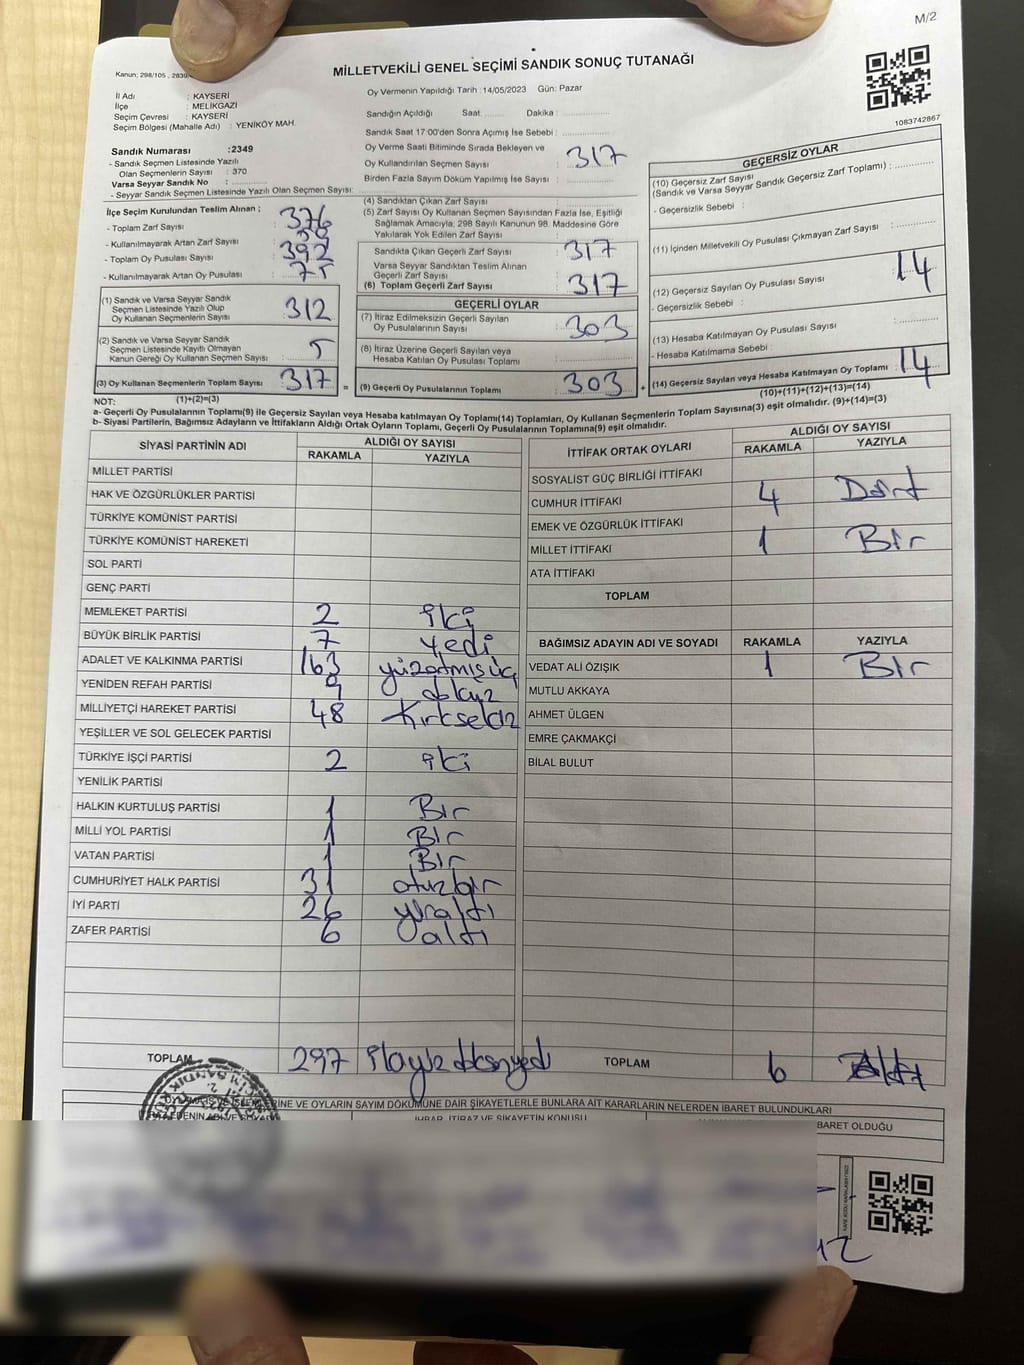 M/2
Kanun; 298/105 , 2839
MİLLETVEKİLİ GENEL SEÇİMİ SANDIK SONUÇ TUTANAĞI
1083742867
İl Adı : KAYSERİ
İlçe : MELİKGAZİ
Seçim Çevresi : KAYSERİ
Seçim Bölgesi (Mahalle Adı) : YENİKÖY MAH.
Sandık Numarası : 2349
- Sandık Seçmen Listesinde Yazılı
Olan Seçmenlerin Sayısı : 370
Varsa Seyyar Sandık No :
- Seyyar Sandık Seçmen Listesinde Yazılı Olan Seçmen Sayısı:
Oy Vermenin Yapıldığı Tarih :14/05/2023 Gün: Pazar
Sandığın Açıldığı Saat Dakika :
Sandık Saat 17:00'den Sonra Açımış İse Sebebi :
Oy Verme Saati Bitiminde Sırada Bekleyen ve
Oy Kullandırılan Seçmen Sayısı : 317
Birden Fazla Sayım Döküm Yapılmış İse Sayısı :
İlçe Seçim Kurulundan Teslim Alınan ;
- Toplam Zarf Sayısı : 376
- Kullanılmayarak Artan Zarf Sayısı :
- Toplam Oy Pusulası : 392
- Kullanılmayarak Artan Oy Pusulası : 75
(1) Sandık ve Varsa Seyyar Sandık
Seçmen Listesinde Yazılı Olup
Oy Kullanan Seçmenlerin Sayısı : 312
(2) Sandık ve Varsa Seyyar Sandık
Seçmen Listesinde Kayıtlı Olmayan
Kanun Gereği Oy Kullanan Seçmen Sayısı : 5
(3) Oy Kullanan Seçmenlerin Toplam Sayısı : 317 =
(1)+(2)=(3)
(4) Sandıktan Çıkan Zarf Sayısı :
(5) Zarf Sayısı Oy Kullanan Seçmen Sayısından Fazla İse, Eşitliği
Sağlamak Amacıyla, 298 Sayılı Kanunun 98. Maddesine Göre
Yakılarak Yok Edilen Zarf Sayısı :
Sandıkta Çıkan Geçerli Zarf Sayısı : 317
Varsa Seyyar Sandıktan Teslim Alınan
Geçerli Zarf Sayısı :
(6) Toplam Geçerli Zarf Sayısı : 317
GEÇERLİ OYLAR
(7) İtiraz Edilmeksizin Geçerli Sayılan
Oy Pusulalarının Sayısı : 303
(8) İtiraz Üzerine Geçerli Sayılan veya
Hesaba Katılan Oy Pusulası Toplamı :
(9) Geçerli Oy Pusulalarının Toplamı : 303 +
GEÇERSİZ OYLAR
(10) Geçersiz Zarf Sayısı
(Sandık ve Varsa Seyyar Sandık Geçersiz Zarf Toplamı) :
- Geçersizlik Sebebi :
(11) İçinden Milletvekili Oy Pusulası Çıkmayan Zarf Sayısı :
(12) Geçersiz Sayılan Oy Pusulası Sayısı : 14
- Geçersizlik Sebebi :
(13) Hesaba Katılmayan Oy Pusulası Sayısı :
- Hesaba Katılmama Sebebi :
(14) Geçersiz Sayılan veya Hesaba Katılmayan Oy Toplamı : 14
(10)+(11)+(12)+(13)=(14)
NOT:
a- Geçerli Oy Pusulalarının Toplamı(9) ile Geçersiz Sayılan veya Hesaba katılmayan Oy Toplamı(14) Toplamları, Oy Kullanan Seçmenlerin Toplam Sayısına(3) eşit olmalıdır. (9)+(14)=(3)
b- Siyasi Partilerin, Bağımsız Adayların ve İttifakların Aldığı Ortak Oyların Toplamı, Geçerli Oy Pusulalarının Toplamına(9) eşit olmalıdır.
SİYASİ PARTİNİN ADI ALDIĞI OY SAYISI
RAKAMLA YAZIYLA
MİLLET PARTİSİ
HAK VE ÖZGÜRLÜKLER PARTİSİ
TÜRKİYE KOMÜNİST PARTİSİ
TÜRKİYE KOMÜNİST HAREKETİ
SOL PARTİ
GENÇ PARTİ
MEMLEKET PARTİSİ 2 iki
BÜYÜK BİRLİK PARTİSİ 7 yedi
ADALET VE KALKINMA PARTİSİ 163 yüzatmışüç
YENİDEN REFAH PARTİSİ 9 dokuz
MİLLİYETÇİ HAREKET PARTİSİ 48 Kırksekiz
YEŞİLLER VE SOL GELECEK PARTİSİ
TÜRKİYE İŞÇİ PARTİSİ 2 iki
YENİLİK PARTİSİ
HALKIN KURTULUŞ PARTİSİ 1 Bir
MİLLİ YOL PARTİSİ 1 Bir
VATAN PARTİSİ 1 Bir
CUMHURİYET HALK PARTİSİ 31 otuzbir
İYİ PARTİ 26 yiraltı
ZAFER PARTİSİ 6 altı
TOPLAM 297
İTTİFAK ORTAK OYLARI ALDIĞI OY SAYISI
RAKAMLA YAZIYLA
SOSYALİST GÜÇ BİRLİĞİ İTTİFAKI
CUMHUR İTTİFAKI 4 Dört
EMEK VE ÖZGÜRLÜK İTTİFAKI
MİLLET İTTİFAKI 1 Bir
ATA İTTİFAKI
TOPLAM
BAĞIMSIZ ADAYIN ADI VE SOYADI RAKAMLA YAZIYLA
VEDAT ALİ ÖZIŞIK 1 Bir
MUTLU AKKAYA
AHMET ÜLGEN
EMRE ÇAKMAKÇI
BİLAL BULUT
TOPLAM 6 Altı
İNE VE OYLARIN SAYIM DÖKÜMÜNE DAİR ŞİKAYETLERLE BUNLARA AİT KARARLARIN NELERDEN İBARET BULUNDUKLARI
İHBAR, İTİRAZ VE ŞİKAYETİN KONUSU
İBARET OLDUĞU